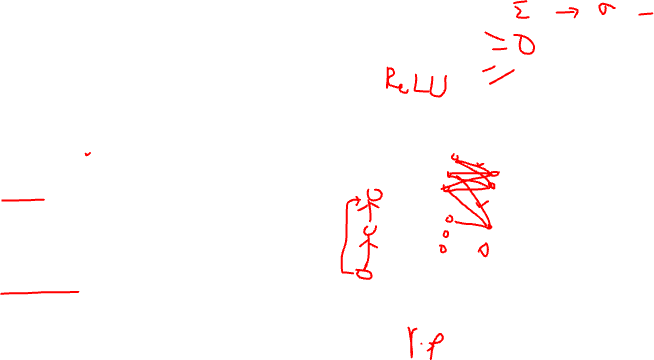 Σ → σ –
ReLU
r.p